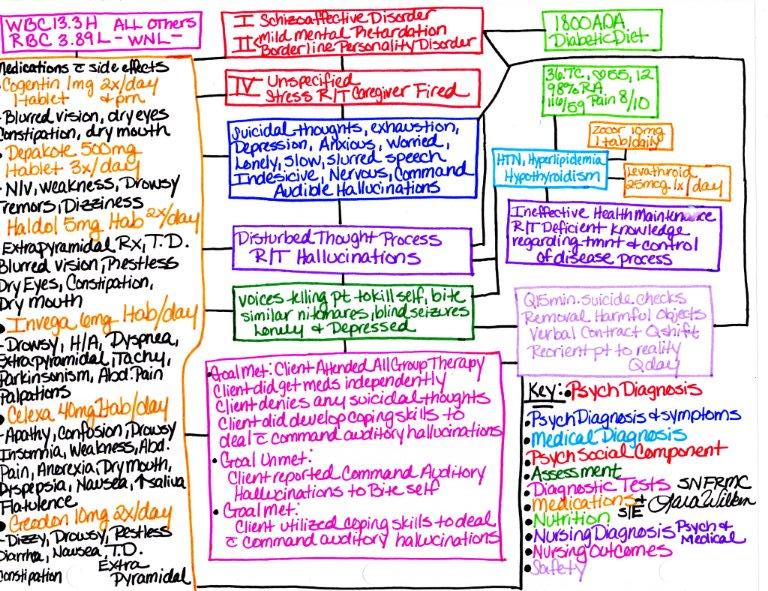 WBC 13.3 H ALL Others
RBC 3.89 L - WNL -
I Schizoaffective Disorder
II Mild mental Retardation
Borderline Personality Disorder
1800 ADA
Diabetic Diet
Medications c̄ side effects
Cogentin 1mg 2x/day
1 tablet & prn
- Blurred vision, dry eyes
Constipation, dry mouth
• Depakote 500mg
1 tablet 3x/day
- N/V, Weakness, Drowsy
Tremors, Dizziness
Haldol 5mg 1tab 2x/day
Extrapyramidal Rx, T.D.
Blurred vision, Restless
Dry Eyes, Constipation,
Dry mouth
• Invega 6mg 1tab/day
- Drowsy, H/A, Dyspnea,
Extrapyramidal, Tachy,
Parkinsonism, Abd. Pain
Palpations
• Celexa 40mg 1tab/day
- Apathy, Confusion, Drowsy
Insomnia, Weakness, Abd.
Pain, Anorexia, Dry mouth,
Dyspepsia, Nausea, ↑ saliva
Flatulence
• Geodon 10mg 2x/day
- Dizzy, Drowsy, Restless
Diarrhea, Nausea, T.D.
Constipation Extra
Pyramidal
IV Unspecified
Stress R/T Caregiver Fired
36.7c, 55, 12
98% RA
116/59 Pain 8/10
Suicidal thoughts, exhaustion,
Depression, Anxious, worried,
Lonely, slow, slurred speech
Indesicive, Nervous, Command
Audible Hallucinations
Zocor 10mg
1 tab/daily
HTN, Hyperlipidemia
Hypothyroidism
Levathroid
25mcg 1x/day
Disturbed Thought Process
R/T Hallucinations
Ineffective Health Maintenance
R/T Deficient knowledge
regarding tmnt & control
of disease process
Voices telling pt to kill self, bite
similar nitemares, blind seizures
Lonely & Depressed
Q15min. suicide checks
Removal Harmful Objects
Verbal Contract Q shift
Reorient pt to reality
Q day
• Goal Met: Client Attended All Group Therapy
Client did get meds independently
Client denies any suicidal thoughts
Client did develop coping skills to
deal c̄ command auditory hallucinations
• Goal Unmet:
Client reported Command Auditory
Hallucinations to Bite self
• Goal met:
Client utilized coping skills to deal
c̄ command auditory hallucinations
Key: • Psych Diagnosis
• Psych Diagnosis & symptoms
• Medical Diagnosis
• Psych Social Component
• Assessment
• Diagnostic Tests SNFRMC
• Medications & S/E
• Nutrition
• Nursing Diagnosis Psych & Medical
• Nursing Outcomes
• Safety